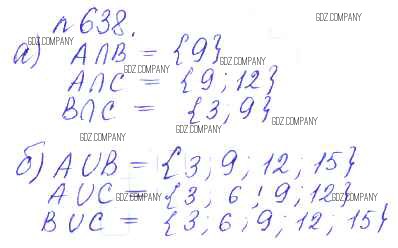 №638.
GDZ.COMPANY
а) A∩B = {9}
GDZ.COMPANY
GDZ.COMPANY
GDZ.COMPANY
A∩C = {9; 12}
B∩C = {3; 9}
GDZ.COMPANY
GDZ.COMPANY
GDZ.COMPANY
б) A∪B = {3; 9; 12; 15}
A∪C = {3; 6; 9; 12}
GDZ.COMPANY
GDZ.COMPANY
B∪C = {3; 6; 9; 12; 15}